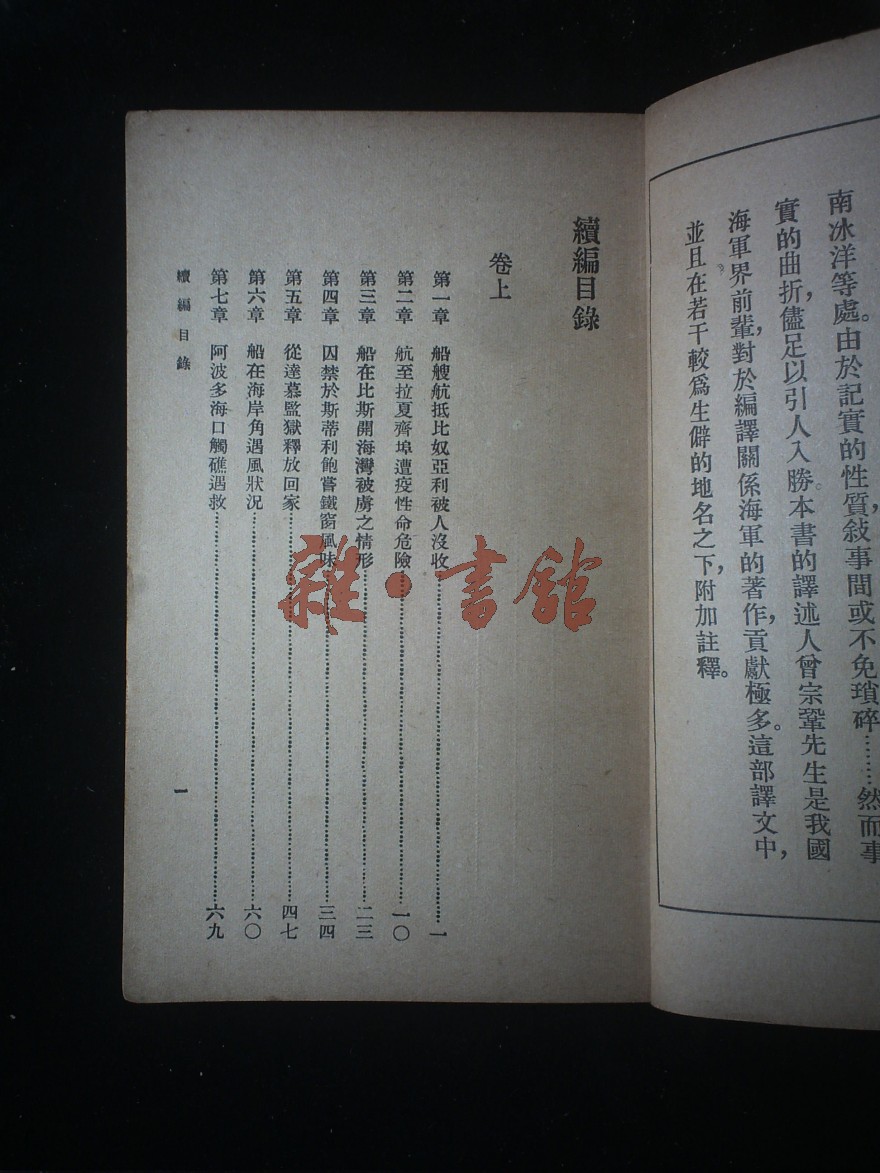 南冰洋等處。由於記實的性質，敍事間或不免瑣碎………然而事
實的曲折，儘足以引人入勝。本書的譯述人曾宗鞏先生是我國
海軍界前輩，對於編譯關係海軍的著作，貢獻極多。這部譯文中，
並且在若干較爲生僻的地名之下，附加註釋。
續編目錄
卷上
第一章　船艘航抵比奴亞利被人沒收……一
第二章　航至拉夏齊埠遭疫性命危險……一〇
第三章　船在比斯開海灣被虜之情形……二三
第四章　囚禁於斯蒂利飽嘗鐵窗風味……三四
第五章　從達慕監獄釋放回家……四七
第六章　船在海岸角遇風狀況……六〇
第七章　阿波多海口觸礁遇救……六九
續編目錄
一
雜·書館